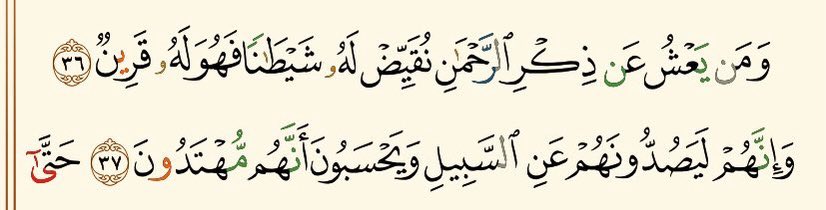 وَمَن يَعْشُ عَن ذِكْرِ ٱلرَّحْمَٰنِ نُقَيِّضْ لَهُۥ شَيْطَٰنًا فَهُوَ لَهُۥ قَرِينٌ ٣٦
وَإِنَّهُمْ لَيَصُدُّونَهُمْ عَنِ ٱلسَّبِيلِ وَيَحْسَبُونَ أَنَّهُم مُّهْتَدُونَ ٣٧ حَتَّىٰٓ